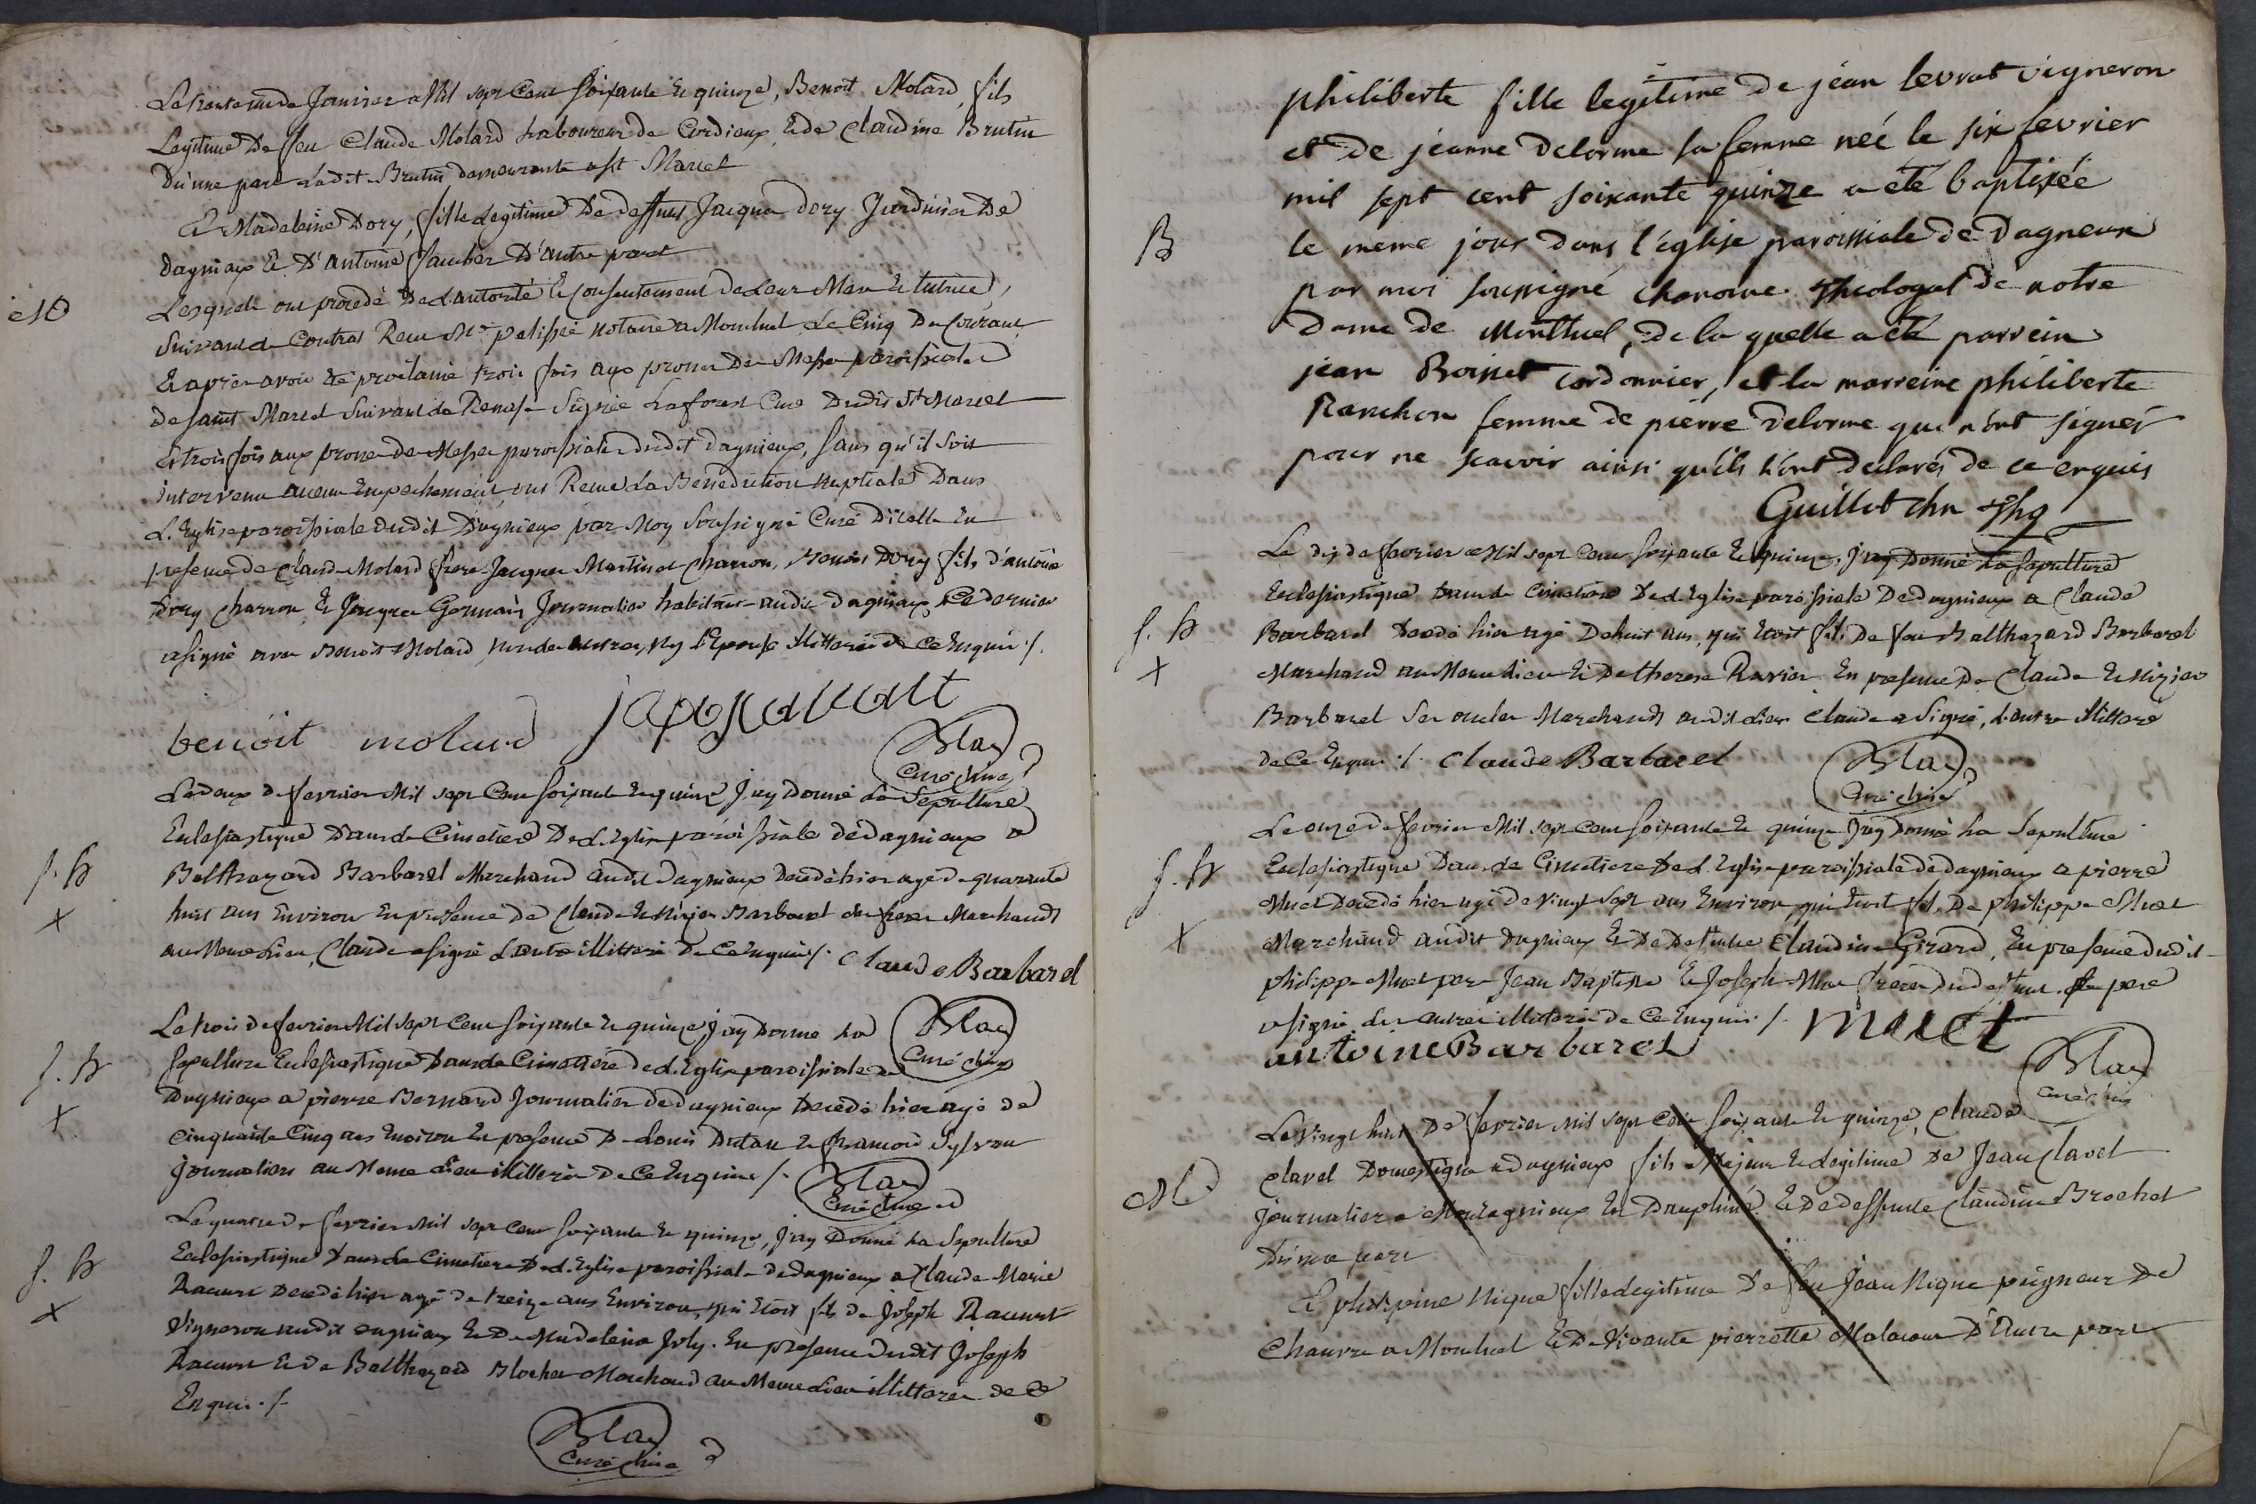 Le trente un de Janvier Mil sept Cent soixante Et quinze, Benoit Molard, fils
Legitime De feu Claude Molard Laboureur de Cordieux, Et de Claudine Brutin
D'une part Ladit Brutin demeurante a St Marcel
Et Madeleine Dory, fille Legitime De deffunt Jacque Dory Jardinier De
dagnieux Et D'antoine Saucher D'autre part
M
Lesquels ont procedé De L'autorité Et Consentement de Leur Mere Et tutrice,
Suivant Le Contrat Recu Me pelissié Notaire a Montluel Le Cinq Du Courant
Et apres avoir Eté proclamé trois fois aux prones Des Messes paroissiales
de saint Marcel Suivant La Remise Signée Laforest Curé Dudit St Marcel
Et trois fois aux prones des Messes paroissiales dudit dagnieux, sans qu'il soit
intervenu aucun Empechement, ont Recu La Benediction nuptiale Dans
L'Eglise paroissiale dudit Dagnieux par Moy soussigné Curé D'icelle En
presence de Claude Molard frere Jacque Martinet Charron, Benoit Dory fils d'antoine
Dory Charron, Et Jacque Germain Journalier habitans audit dagnieux Ce dernier
a signé avec Benoit Molard non les autres, Ny L'Epouse illitterés de Ce Enquis /.
benoit molard
Blay
Curé
Le deux de fevrier Mil sept Cent soixante Et quinze J'ay Donné La Sepulture
Eclesiastique Dans Le Cimetiere De L'Eglise paroissiale de dagnieux a
S. H
X
Balthazard Barbarel Marchand audit Dagnieux decedé hier agé de quarante
huit ans Environ En presence de Claude Et Nizier Barbarel ses freres Marchands
au Meme Lieu, Claude a signé L'autre illitteré de Ce Enquis /. Claude Barbarel
Blay
Curé
Le trois de fevrier Mil sept Cent soixante Et quinze J'ay Donné La
S. H
X
sepulture Eclesiastique Dans Le Cimettiere de L'Eglise paroissiale de
Dagnieux a pierre Bernard Journalier de dagnieux Decedé hier agé de
Cinquante Cinq ans Environ En presence De Louis Dutau Et francois Sylvan
Journaliers au Meme Lieu illitterés De Ce Enquis /.
Blay
Curé
Le quatre de fevrier Mil sept Cent soixante Et quinze, J'ay Donné La Sepulture
S. H
X
Eclesiastique Dans Le Cimetiere De L'Eglise paroissiale de Dagnieux a Claude Marie
Racurt Decedé hier agé de treize ans Environ, qui Etoit fils de Joseph Racurt
Vigneron audit dagnieux Et De Madeleine Joly. En presence dudit Joseph
Racurt Et de Balthazard Blochet Marchand au Meme Lieu illitterés de Ce
Enquis /.
Blay
Curé
philiberte fille legitime de jean levrat vigneron
et de jeanne delorme sa femme née le six fevrier
mil sept cent soixante quinze a eté baptisée
B
le meme jour dans l'eglise paroissiale de Dagneux
par moi soussigné chanoine theologal de notre
dame de Montluel, de la quelle a eté parrein
jean Boisset cordonnier, et la marreine philiberte
Ranchon femme de pierre delorme qui n'ont signés
pour ne scavoir ainsi qu'ils l'ont declarés de ce enquis
Guillot chn thg
Le dix de fevrier Mil sept Cent soixante Et quinze, J'ay Donné La Sepulture
Eclesiastique Dans Le Cimetiere De L'Eglise paroissiale De dagnieux a Claude
S. H
X
Barbarel Decedé hier agé De huit ans, qui Etoit fils De feu Balthazard Barbarel
Marchand au Meme Lieu Et De therese Ravier En presence De Claude Et Nizier
Barbarel Ses oncles Marchands audit Lieu Claude a Signé, L'autre illitteré
de Ce Enquis /. Claude Barbarel
Blay
Curé
Le onze de fevrier Mil sept Cent soixante Et quinze J'ay Donné La Sepulture
S. H
X
Eclesiastique Dans Le Cimetiere De L'Eglise paroissiale de dagnieux a pierre
Muet Decedé hier agé de vingt sept ans Environ, qui Etoit fils De philippe Muet
Marchand audit dagnieux Et De Deffunte Claudine Girard, En presence dudit
philippe Muet pere Jean Baptiste Et Joseph Muet freres du deffunt. Le pere
a signé Les autres illitterés de Ce Enquis /. Muet
antoine Barbarel
Blay
Curé
Le vingt huit De fevrier Mil sept Cent soixante Et quinze, Claude
M
Clavel Domestique a dagnieux fils Majeur Et Legitime De Jean Clavel
Journalier a Montagnieux En Dauphiné Et De deffunte Claudine Brochet
D'une part
Et philipine Nique fille Legitime De feu Jean Nique peigneur De
Chanvre a Montluel Et De Vivante pierrette Malacour D'Autre part